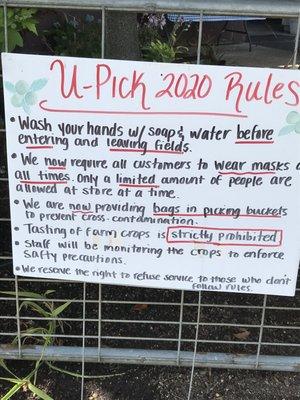 U-Pick 2020 Rules
• Wash your hands w/ soap & water before
entering and leaving fields.
• We now require all customers to wear masks @
all times. Only a limited amount of people are
allowed at store at a time.
• We are now providing bags in picking buckets
to prevent cross-contamination.
• Tasting of farm crops is strictly prohibited
• Staff will be monitoring the crops to enforce
safty precautions.
• We reserve the right to refuse service to those who don't
follow rules.